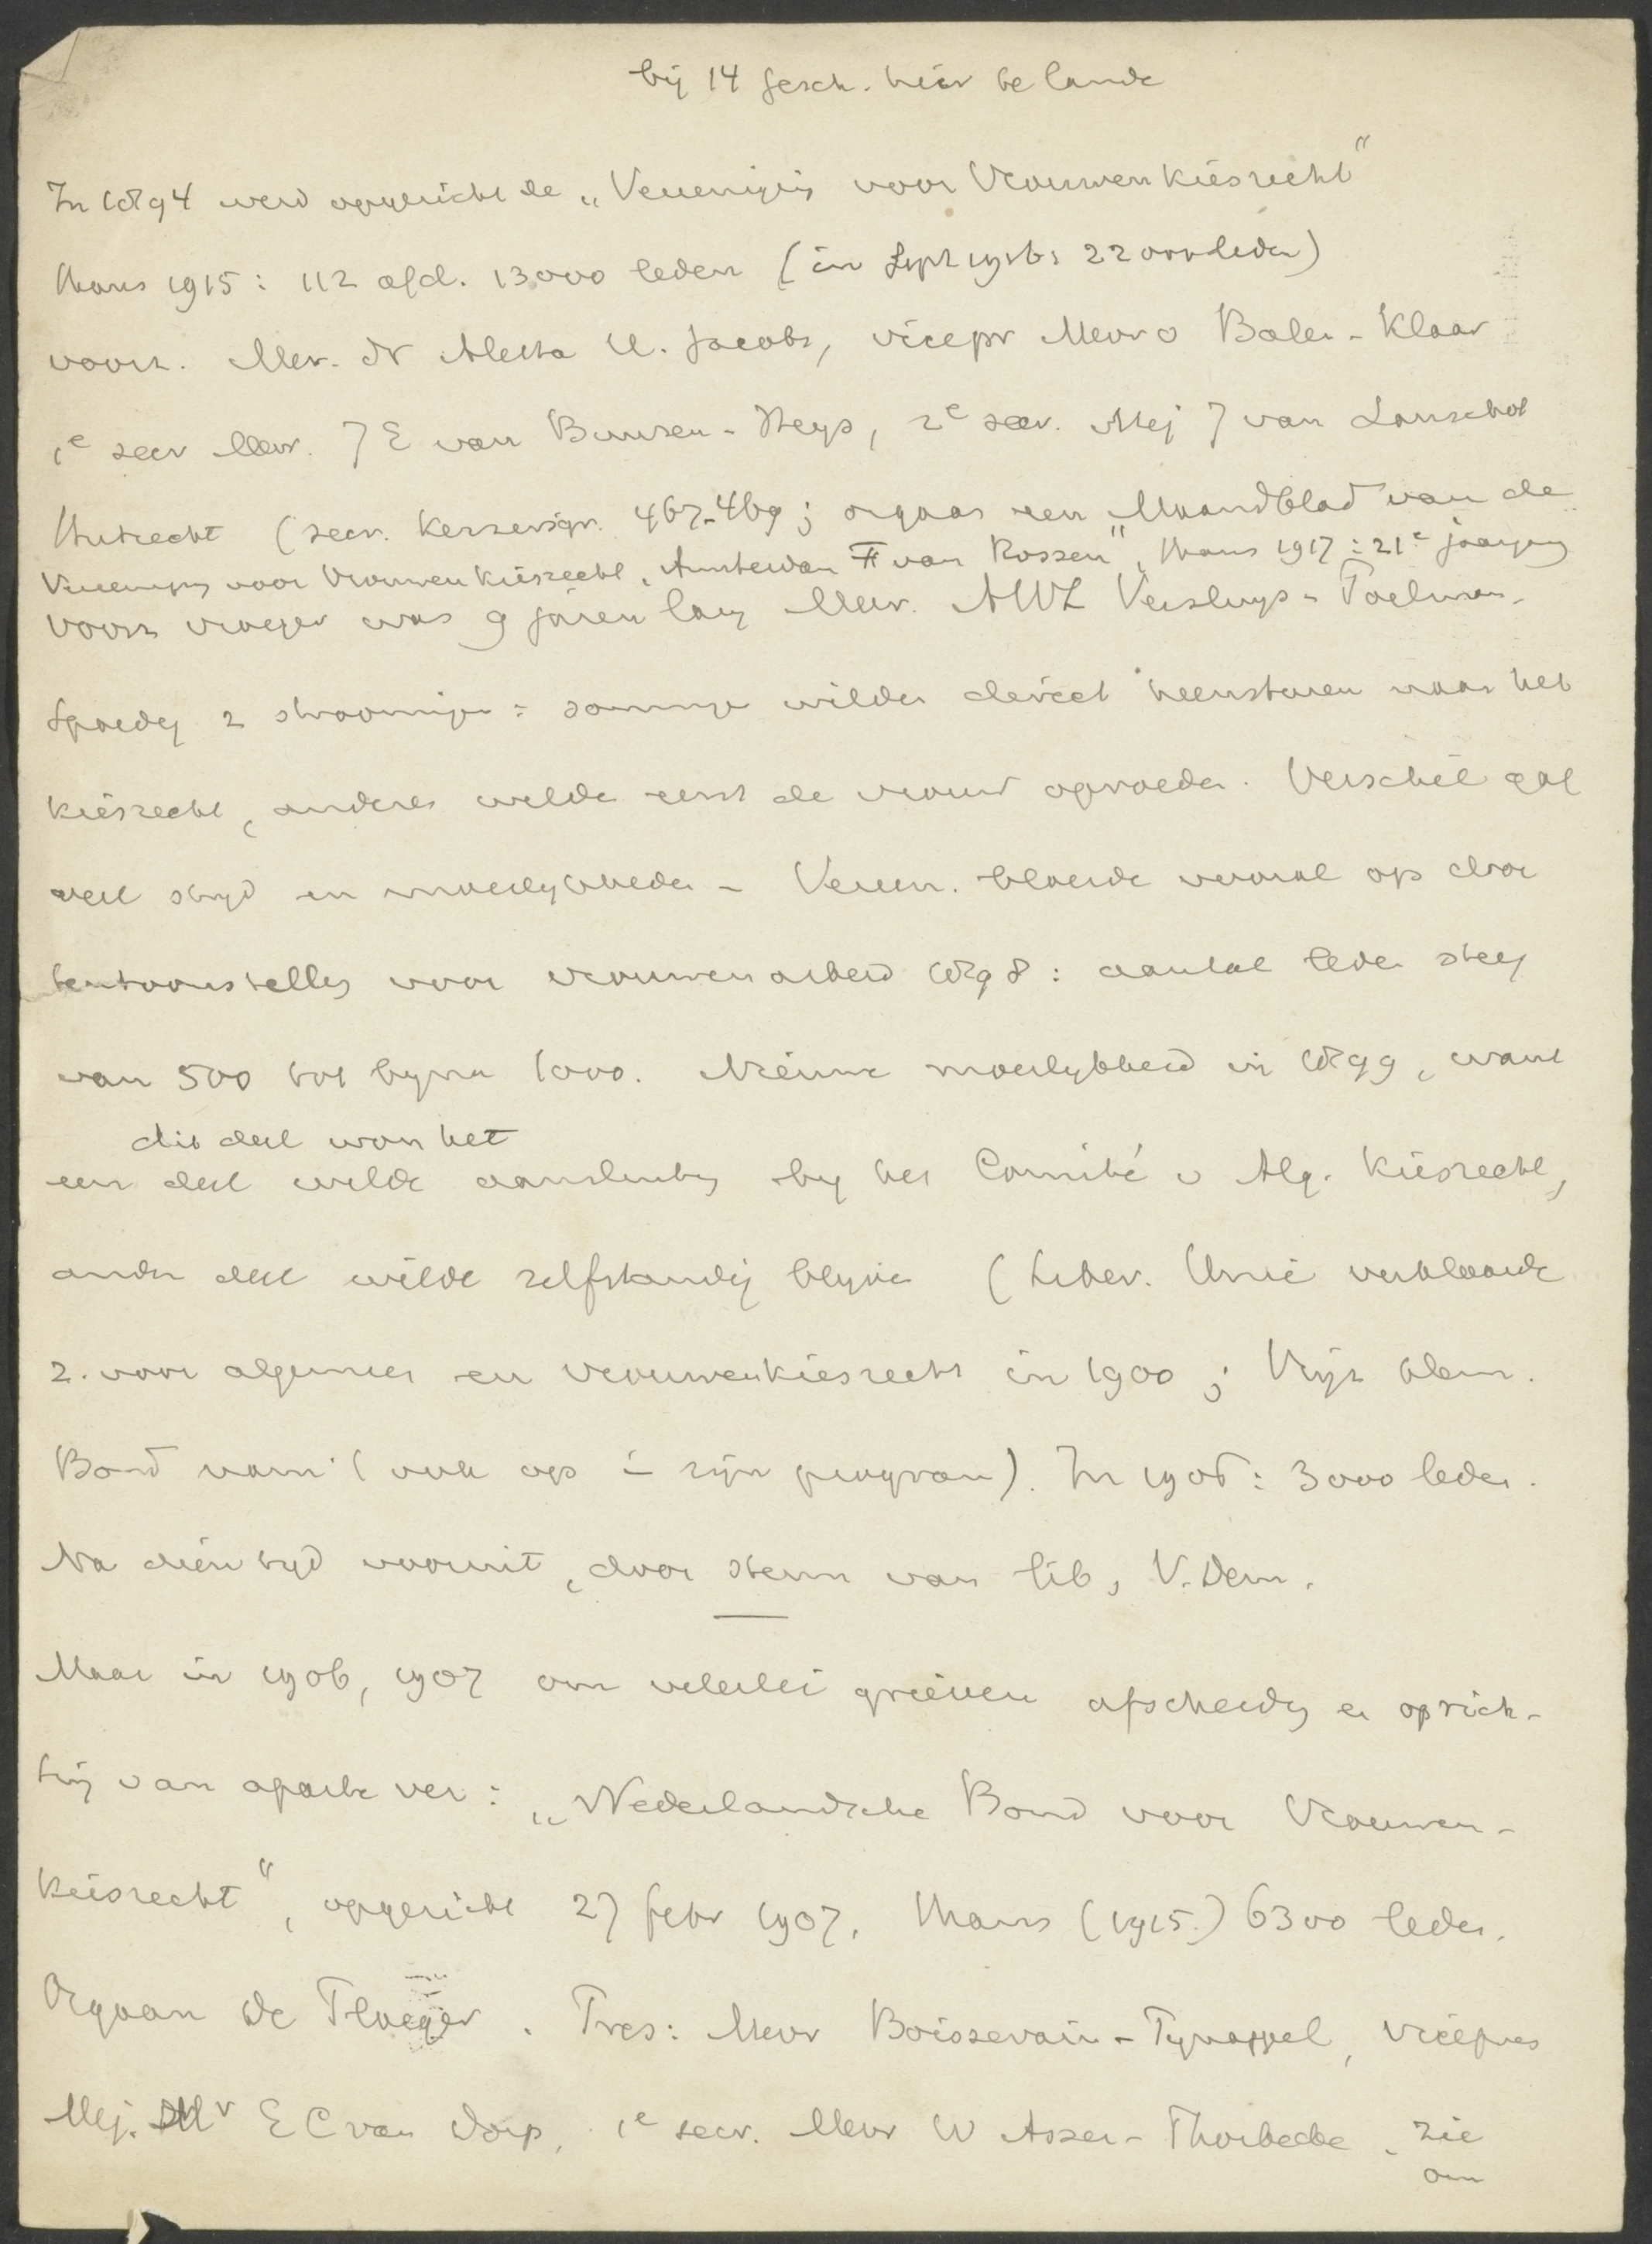 bij 14 gesch. hier te lande
In 1894 werd opgericht de „Vereenigig voor Vrouwenkiesrecht"
thans 1915: 112 afd. 13000 leden (in Sept 1916: 22000 leden)
voorz. Mev. dr Aletta H. Jacobs, vicepr Mevr O Baler-Klaar
1e secr Mevr. J E van Buuren-Heys, 2e secr. Mej J van Lanschot
Hubrecht (secr. Keizersgr. 467-469; orgaan een „Maandblad van de
Vereenigng voor Vrouwenkiesrecht, Amsterdam F van Rossen", thans 1917: 21e jaargang
voorz vroeger was 9 jaren lang Mevr. AWL Versluys-Poelman.
Spoedig 2 stroomingen: sommige wilden direct heensturen naar het
kiesrecht, anderen wilde eerst de vrouw opvoeden. Verschil gaf
veel stryd en moeilykheden - Vereen. bloeide vooral op door
tentoonstelling voor vrouwenarbeid 1898: aantal leden steeg
van 500 tot byna 1000. Nieuwe moeilykheid in 1899, want
dit deel won het
een deel wilde aansluitng by het Comité v Alg. Kiesrecht,
ander deel wilde zelfstandig blyven (Liber. Unie verklaarde
z. voor algemeen en vrouwenkiesrecht in 1900; Vrijz dem.
Bond nam 't ook op in zijn program). In 1906: 3000 leden.
Na dien tyd vooruit, door steun van lib, V. Dem.
Maar in 1906, 1907 om velerlei grieven afscheidng en oprich-
ting van aparte ver: „Nederlandsche Bond voor Vrouwen-
kiesrecht", opgericht 27 febr 1907. Thans (1915) 6300 leden.
Orgaan De Ploeger. Pres: Mevr Boissevain-Pynappel, vicepres
Mej. Mr E C van Dorp, 1e secr. Mevr W Asser-Thorbecke. zie
om